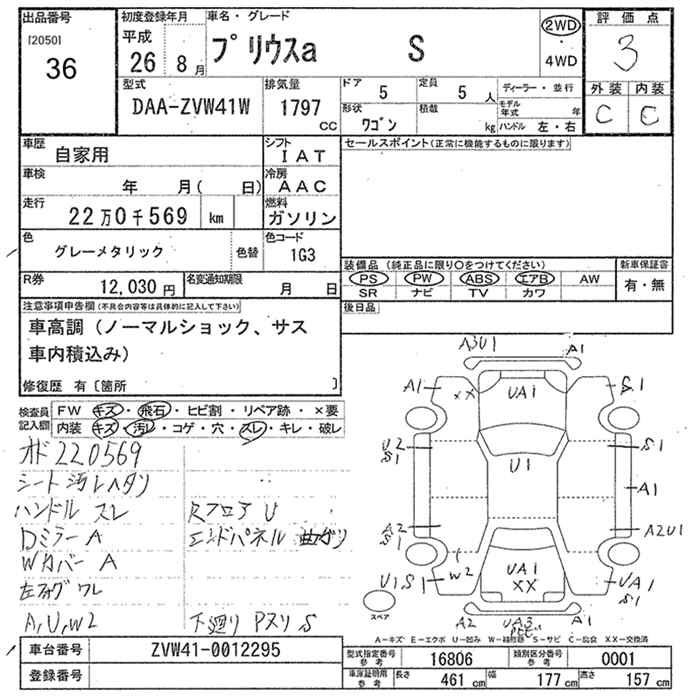 出品番号
[2050]
36
初度登録年月
平成
26 8月
車名・グレード
プリウスa S
2WD
・
4WD
評価点
3
型式
DAA-ZVW41W
排気量
1797
CC
ドア 5
定員 5人
ディーラー・並行
形状
ワゴン
積載
kg
モデル年式 年
ハンドル 左・右
外装 内装
C C
車歴
自家用
シフト
IAT
セールスポイント(正常に機能するものに限ります)
車検
年 月( 日)
冷房
AAC
走行
22万0千569 km
燃料
ガソリン
色
グレーメタリック
色替
色コード
1G3
装備品(純正品に限り○をつけてください)
新車保証書
PS PW ABS エアB AW
SR ナビ TV カワ
有・無
R券
12,030円
名変通知期限
月 日
後日品
注意事項申告欄(不具合内容等は具体的に記入して下さい)
車高調(ノーマルショック、サス
車内積込み)
修復歴 有〔箇所 〕
検査員
記入欄
FW キズ・飛石・ヒビ割・リペア跡・×要
内装 キズ・汚レ・コゲ・穴・スレ・キレ・破レ
オド 220569
シート汚レヘタリ
ハンドル スレ
RフロアU
Dミラー A
エンドパネル 曲ガリ
Wカバー A
左フォグ ワレ
A,U,W2
下廻り Pスリ S
A3U1
A1
A1
XX
UA1
S1
U2
S1
U1
S1
A1
A2
S1
A2U1
U1S1
W2
UA1
XX
UA1
S1
スペア
A2
UA3
A1
A-キズ E-エクボ U-凹み W-補修跡 S-サビ C-腐食 XX-交換済
車台番号
ZVW41-0012295
登録番号
型式指定番号
参考
16806
類別区分番号
参考
0001
車庫証明用
参考
長さ 461 cm
幅 177 cm
高さ 157 cm